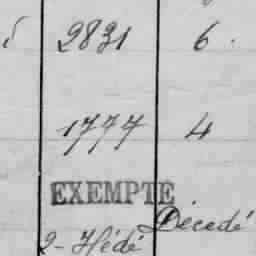 2831 6.
1777 4
EXEMPTE
Décédé
2- Hédé